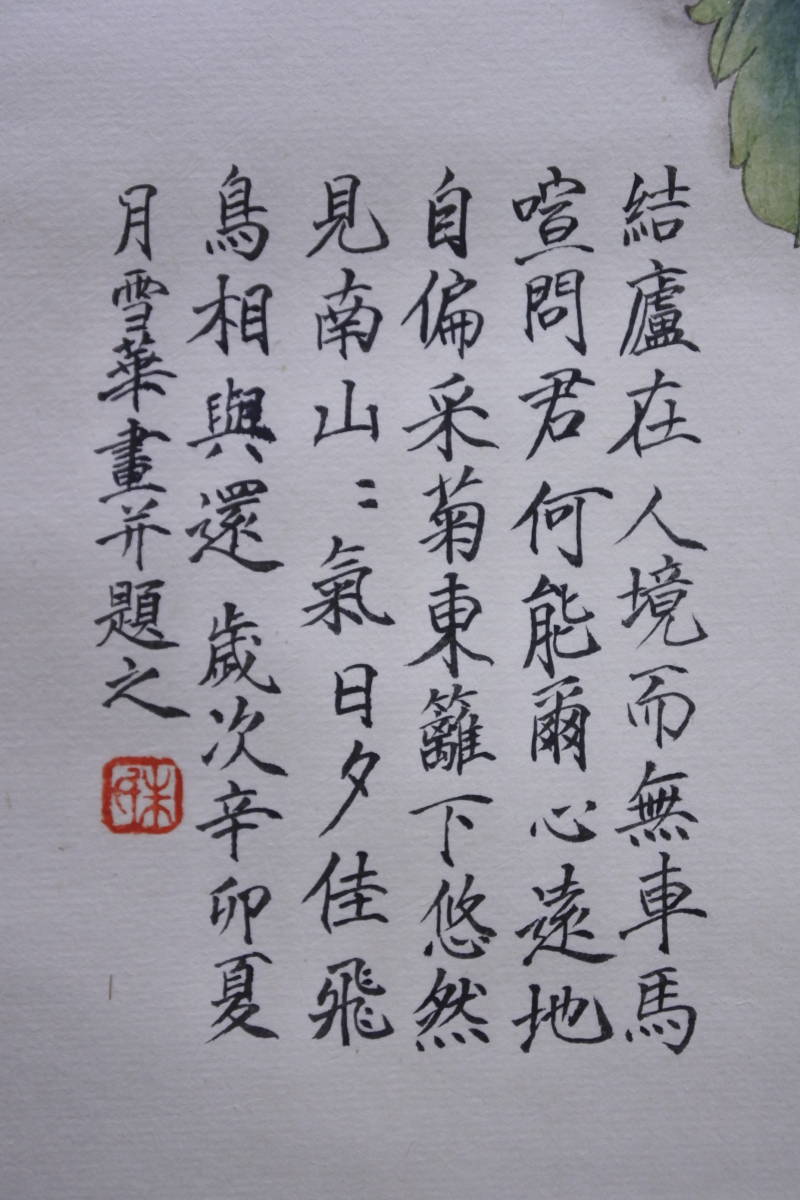 結廬在人境而無車馬
喧問君何能爾心遠地
自偏采菊東籬下悠然
見南山〻氣日夕佳飛
鳥相與還 歲次辛卯夏
月雪華畫并題之